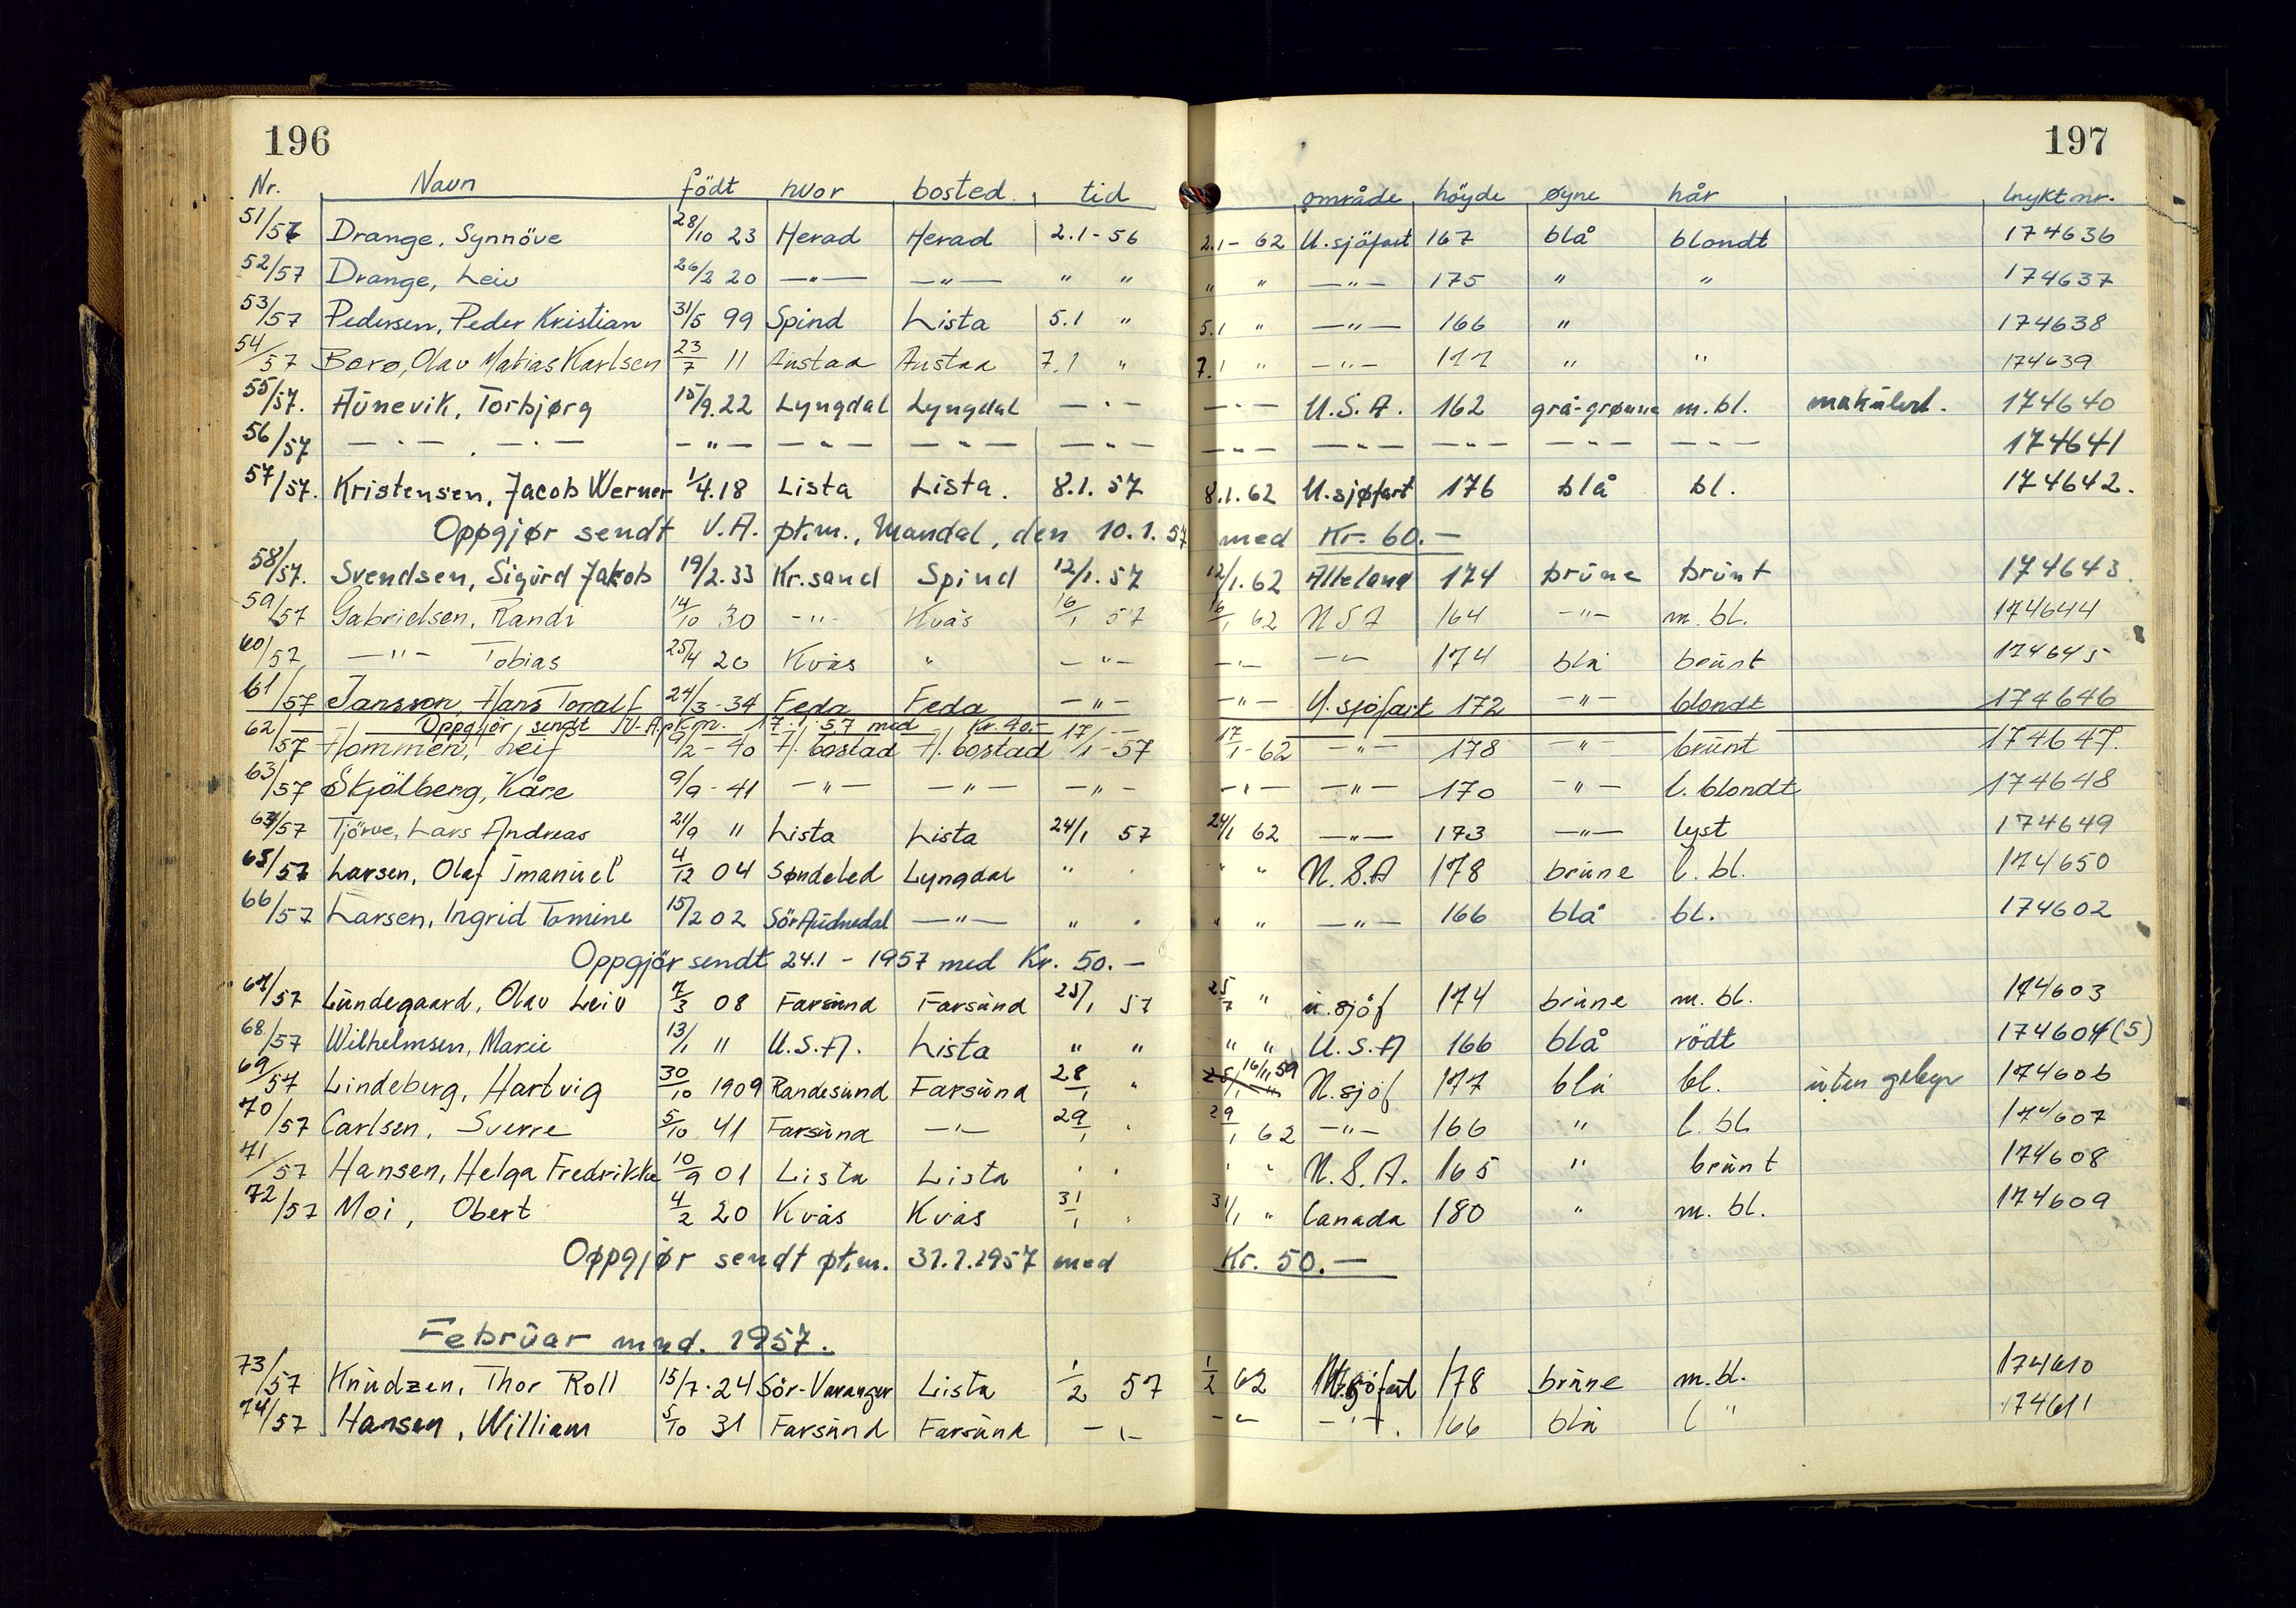 196
197
Nr. Navn født hvor bosted tid område höyde øyne hår trykt nr.
51/57 Drange, Synnöve 28/10 23 Herad Herad 2.1-56 2.1-62 U.sjöfart 167 blå blondt 174636
52/57 Drange, Leiv 26/2 20 —"— —"— " " " " —"— 175 " " 174637
53/57 Pedersen, Peder Kristian 31/5 99 Spind Lista 5.1 " 5.1 " —"— 166 " 174638
54/57 Berø, Olav Matias Karlsen 23/7 11 Austad Austad 7.1 " 7.1 " —"— 177 " " 174639
55/57. Aunevik, Torbjørg 15/9.22 Lyngdal Lyngdal —"— —"— U.S.A. 162 grå-grønne m.bl. makulert. 174640
56/57 —"— —"— —"— —"— —"— —"— —"— —"— —"— —"— —"— 174641
57/57. Kristensen, Jacob Werner 1/4.18 Lista Lista. 8.1.57 8.1.62 U.sjøfart 176 blå bl. 174642.
Oppgjør sendt V.A. pk.m., Mandal, den 10.1.57 med Kr. 60.—
58/57. Svendsen, Sigurd Jakob 19/2.33 Kr.sand Spind 12/1.57 12/1.62 Alle land 174 brune brunt 174643.
59/57 Gabrielsen, Randi 14/10 30 —"— Kvås 16/1 57 16/1 62 USA 164 —"— m. bl. 174644
60/57 —"— Tobias 25/4 20 Kvås " —"— —"— —"— 174 blå brunt 174645
61/57 Jansson, Hans Toralf 24/3-34 Feda Feda —"— —"— U.sjöfart 172 —"— blondt 174646
Oppgjör sendt V.A.pk.m. 17.1.57 med Kr. 40.-
62/57 Hommen, Leif 9/2-40 H. bostad H. bostad 17/1-57 17/1-62 —"— 178 —"— brunt 174647.
63/57 Skjölberg, Kåre 9/9-41 —"— —"— —"— —"— —"— 170 —"— l. blondt 174648
64/57 Tjörve, Lars Andreas 21/9 11 Lista Lista 24/1 57 24/1 62 —"— 173 —"— lyst 174649
65/57 Larsen, Olaf Imanuel 4/12 04 Søndeled Lyngdal " " " " U.S.A 178 brune l. bl. 174650
66/57 Larsen, Ingrid Tomine 15/2 02 Sör Audnedal —"— " " " " —"— 166 blå bl. 174602
Oppgjör sendt 24.1 - 1957 med Kr. 50.—
67/57 Lundegaard, Olav Leiv 7/3 08 Farsund Farsund 25/1 57 25/1 " u.sjöf 174 brune m. bl. 174603
68/57 Wilhelmsen, Marie 13/1 11 U.S.A. Lista " " " " U.S.A 166 blå rödt 174604(5)
69/57 Lindeberg, Hartvig 30/10 1909 Randesund Farsund 28/1 " 16/11 59 U.sjöf 177 blå bl. uten gebyr 174606
70/57 Carlsen, Sverre 5/10 41 Farsund —"— 29/1 " 29/1 62 —"— 166 " l. bl 174607
71/57 Hansen, Helga Fredrikke 10/9 01 Lista Lista " " " " U.S.A. 165 " brunt 174608
72/57 Moi, Obert 4/2 20 Kvås Kvås 31/1 " 31/1 " Canada 180 " m. bl. 174609
Oppgjør sendt pk.m. 31.1.1957 med Kr. 50.—
Februar mnd. 1957.
73/57 Knudzen, Thor Roll 15/7.24 Sör-Varanger Lista 1/2 57 1/2 62 U.sjöfart 178 brune m.bl. 174610
74/57 Hansen, William 5/10 31 Farsund Farsund —"— —"— —"— 166 blå l " 174611